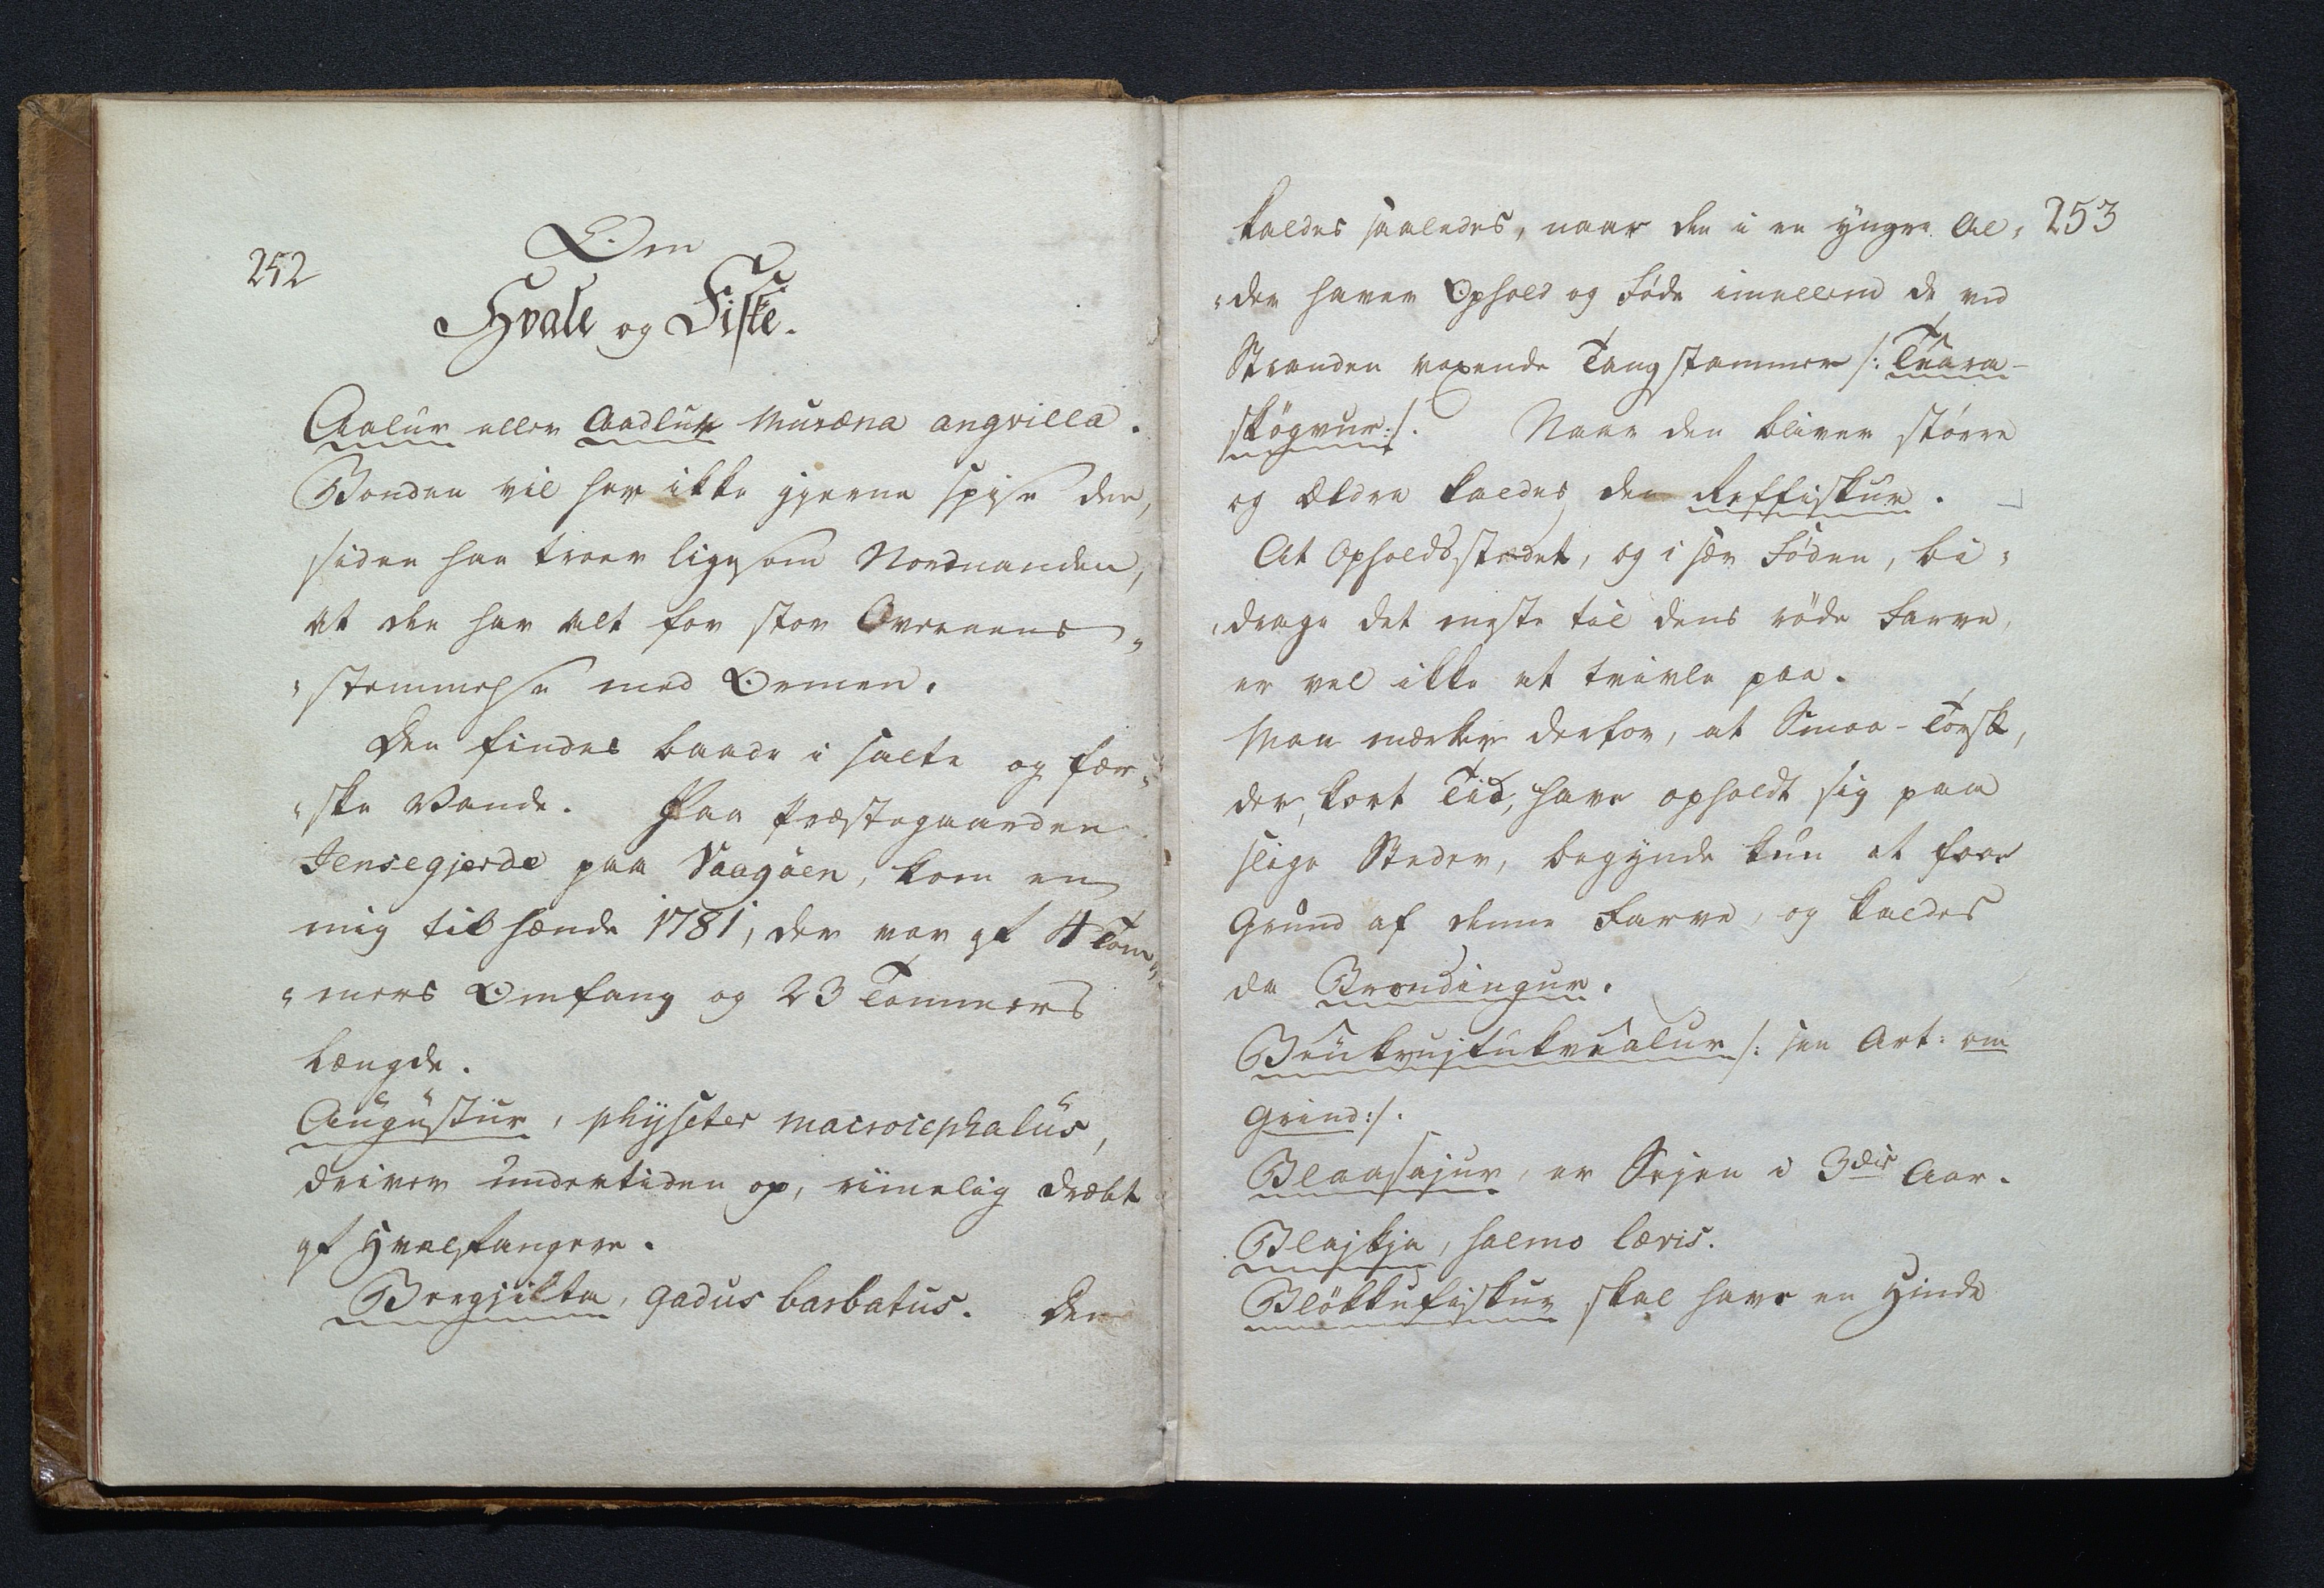 252
Om
Hvale og Fiske.
Aalur eller Aadlur Muræna angvilla.
Bonden vil her ikke gjerne spise den,
siden han troer ligesom Nordmanden,
at den har alt for stor Overeens„
„stemmelse med Ormen.
Den findes baade i salte og fær„
„ske Vande. Paa Præstegaarden
Jensegjerde paa Vaagöen, kom en
mig tilhænde 1781, der var af 4 Tom„
„mers Omfang og 23 Tommers
Længde.
Augustur, physeter macrocephalus,
driver undertiden op, rimelig dræbt
af Hvalfangere.
Bergjilta, gadus barbatus. Den
253
kaldes saaledes, naar den i en yngre Al„
„der haver Ophold og Føde imellem de ved
Stranden voxende Tangstammer /: Teara-
skögvur:/. Naar den bliver större
og ældre kaldes den Reffiskur.
At Opholdsstedet, og i sær Föden, bi„
„drage det meste til dens röde Farve,
er vel ikke at tvivle paa.
Man mærker derfor, at Smaa-Torsk,
der, kort Tid, have opholdt sig paa
slige Steder, begynde kun at faae
Grund af denne Farve, og kaldes
da Brondingur.
/: see Art: om
Grind:/.
Blaasajur, er Sejen i 3die Aar.
Blejkja, salmo lævis.
Blökkufiskur skal have en Hinde